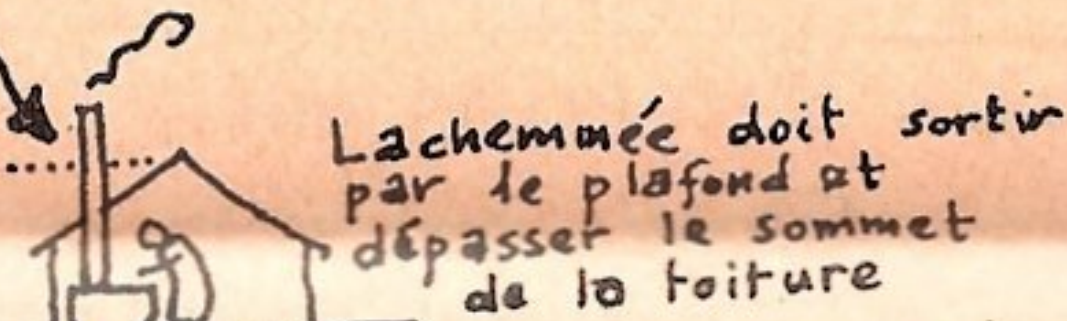 Lachemmée doit sortir
par le plafond et
dépasser le sommet
de la toiture